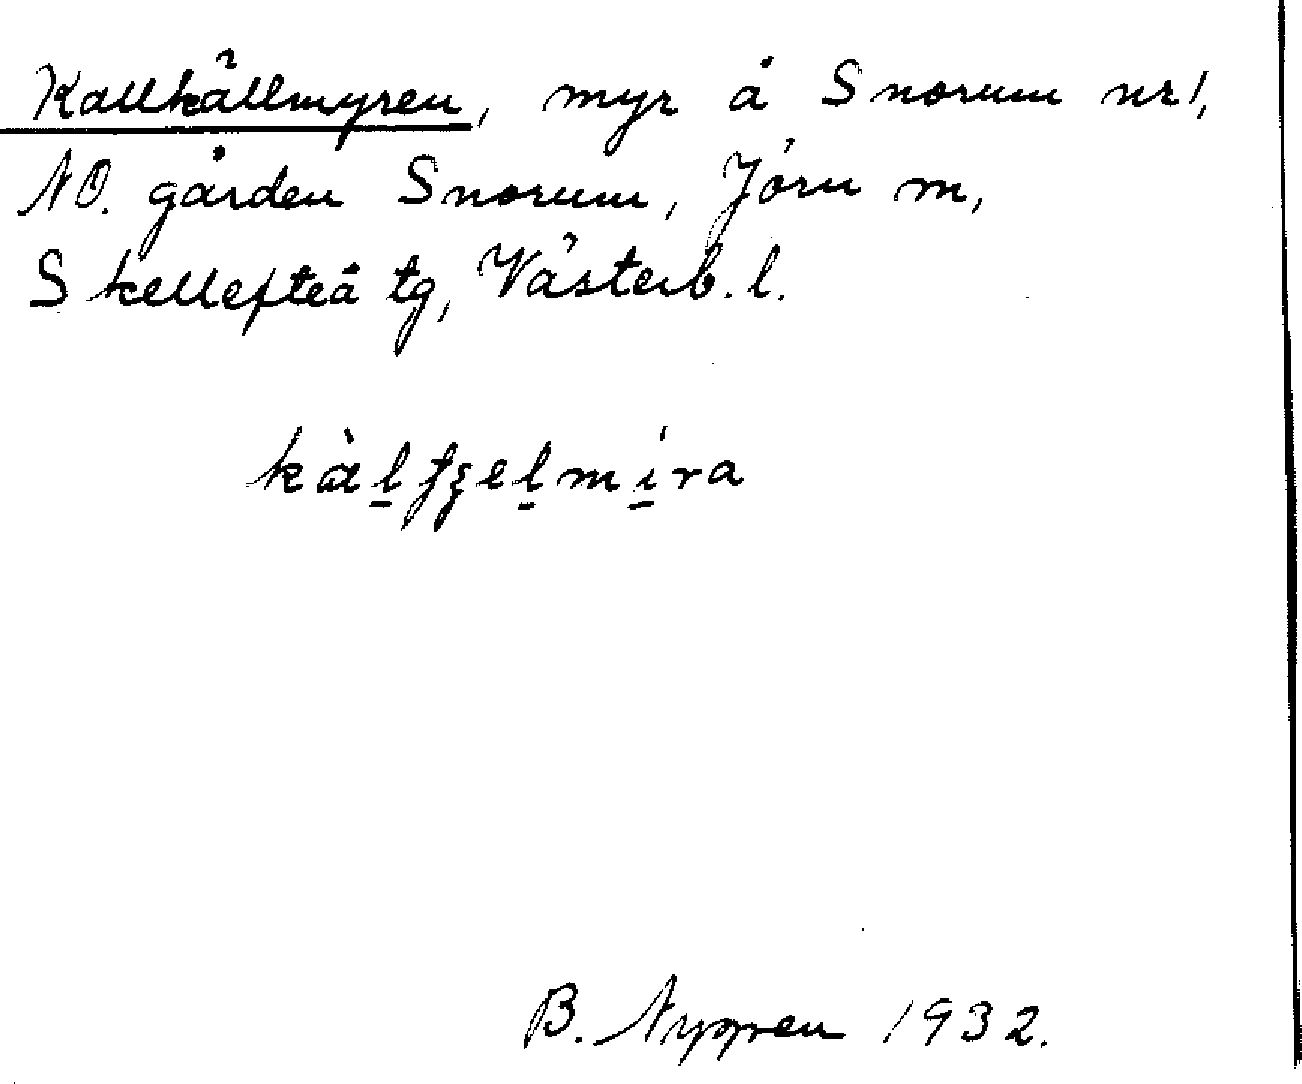 Kallkällmyren, myr å Snorum nr 1,
NO. gården Snorum, Jörn m,
Skellefteå tg, Västerb. l.
kàl̠ fʒel̠mi̠ra
B. Nygren 1932.